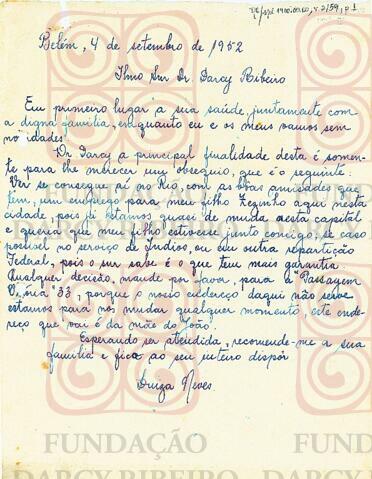 Belém, 4 de setembro de 1952
Ilmo Snr Dr. Darcy Ribeiro
Em primeiro lugar a sua saúde, juntamente com
a digna família, emquanto eu e os meus vamos sem
novidades.
Dr Darcy a principal finalidade desta é somen-
te para lhe merecer um obsequio, que é o seguinte:
Ver se consegue ai no Rio, com as boas amizades que
tem, um emprego para meu filho Zezinho aqui nesta
cidade, pois já estamos quasi de muda nesta capital
e queria que meu filho estivesse junto consigo, se caso
possivel no serviço de Indios, ou em outra repartição
Federal, pois o snr sabe é o que tem mais garantia
Qualquer decisão, mande por favor, para a "Passagem
33, porque o nosso endereço daqui não serve
estamos para nos mudar qualquer momento, este ende-
reço que vai é da mãe do João.
Esperando ser atendida, recomende-me a sua
família e fico ao seu inteiro dispôr
Luiza Neves
FUNDAÇÃO
DARCY RIBEIRO